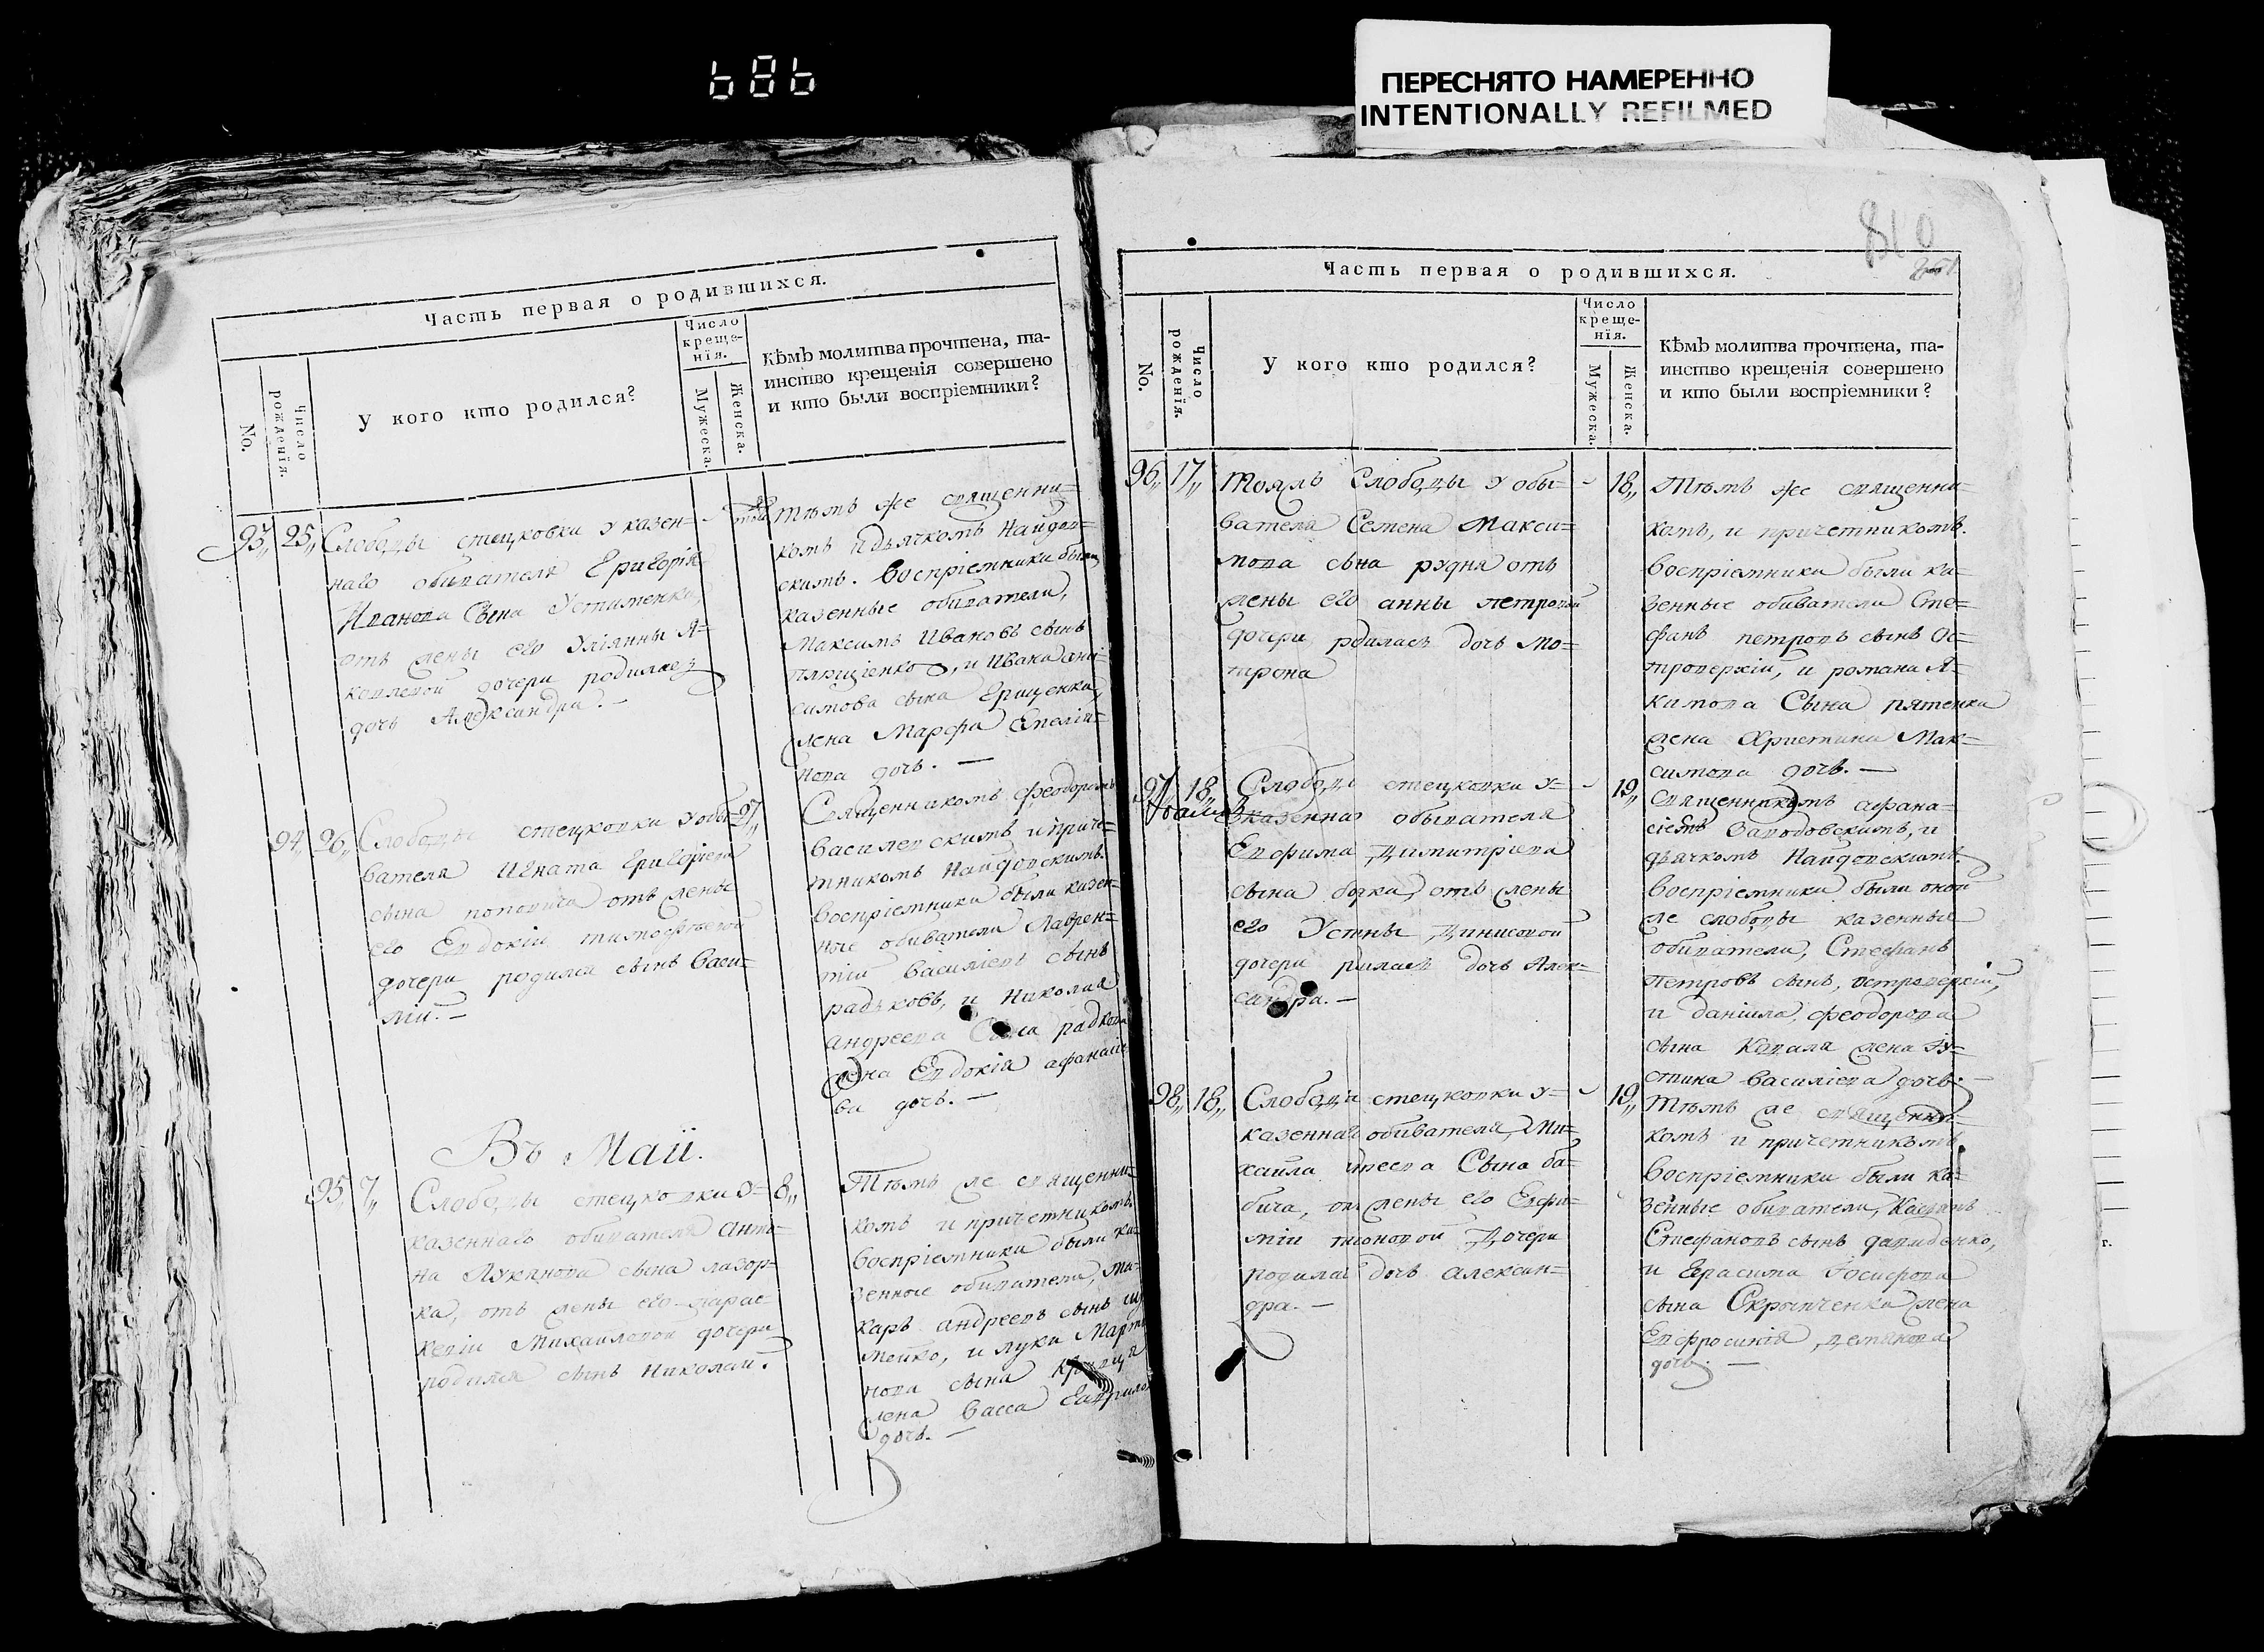 686
ПЕРЕСНЯТО НАМЕРЕННО
INTENTIONALLY REFILMED
Часть первая о родившихся.
No.
Число рожденія.
У кого кто родился?
Число крещенія.
Мужеска.
Женска.
Кѣмъ молитва прочтена, та-
инство крещенія совершено
и кто были воспріемники?
93,, 25,, Слободы стецковки у казен-
наго обивателя Григорія
Иванова Сына Устименка,
отъ жены его Уліянны Я-
ковлевой дочери родилась
дочь Александра. —
Тѣмъ же священни-
комъ и дьячкомъ Найдов-
скимъ. Воспріемники были
казенные обиватели,
Максимъ Ивановъ сынъ
и Ивана Они-
симова сына Грищенка,
жена Марфа Емелія-
нова дочь. —
94,, 26,, Слободы стецковки у оби- 27,,
вателя Игната Григоріева
сына поповича отъ жены
его Евдокіи тимофѣевой
дочери родился сынъ Васи-
лій. —
Священникомъ Феодоромъ
Василевскимъ и приче-
тникомъ Найдовскимъ.
Воспріемники были казен-
ные обиватели Лаврен-
тій Василіевъ сынъ
радьковъ, и Николая
андреева Сына радкова
жена Евдокія афанасіе-
ва дочь. —
Въ Маіи.
95 7,, Слободы стецковки у- 8,,
казеннаго обивателя Анто-
на Лукянова сына лазор-
ка, отъ жены его парас-
кевіи Михаилевой дочери
родился сынъ Николай.
Тѣмъ же священни-
комъ и причетникомъ
Воспріемники были ка-
зенные обиватели, Ма-
каръ андреевъ сынъ
и луки Марты-
нова сына
жена Васса Гаврилова
дочь. —
810
Часть первая о родившихся.
No.
Число рожденія.
У кого кто родился?
Число крещенія.
Мужеска.
Женска.
Кѣмъ молитва прочтена, та-
инство крещенія совершено
и кто были воспріемники?
96,, 17,, Тояжъ Слободы у обы- 18,,
вателя Семена Макси-
мова сына рудня отъ
жены его анны петровой
дочери рдилась дочь Мо-
трона
Тѣмъ же священни-
комъ, и причетникомъ.
Воспріемники были ка-
зенные обиватели Сте-
фанъ петровъ сынъ Ос-
троверхій, и романа А-
кимова Сына пятенка
жена Христина Мак-
симова дочь. —
97,, 18,, Слободы стецковки у- 19,,
казеннаго обывателя
Евфима Димитріева
сына бояка, отъ жены
его Устины Динисовой
дочери рдилась дочь Алек-
сандра. —
священникомъ афана-
сіемъ и
дьячкомъ Найдовскимъ.
Воспріемники были оной
же слободы казенные
обиватели, Стефанъ
петровъ сынъ, островерхій,
и даніила, феодорова
сына Коваля жена Іу-
стина Василіева дочь. —
98,, 18,, Слободы стецковки у- 19,,
казеннаго обивателя, Ми-
хаила Сына ба-
бича, отъ жены его Евфи-
міи Дочери
родилась дочь алексан-
дра. —
Тѣмъ же священни-
комъ и причетникомъ.
Воспріемники были ка-
зенные обиватели,
Стефановъ сынъ давиденко,
и Герасима Іосифова
сына Скрыпченка жена
Евфросинія,
дочь. —
г.